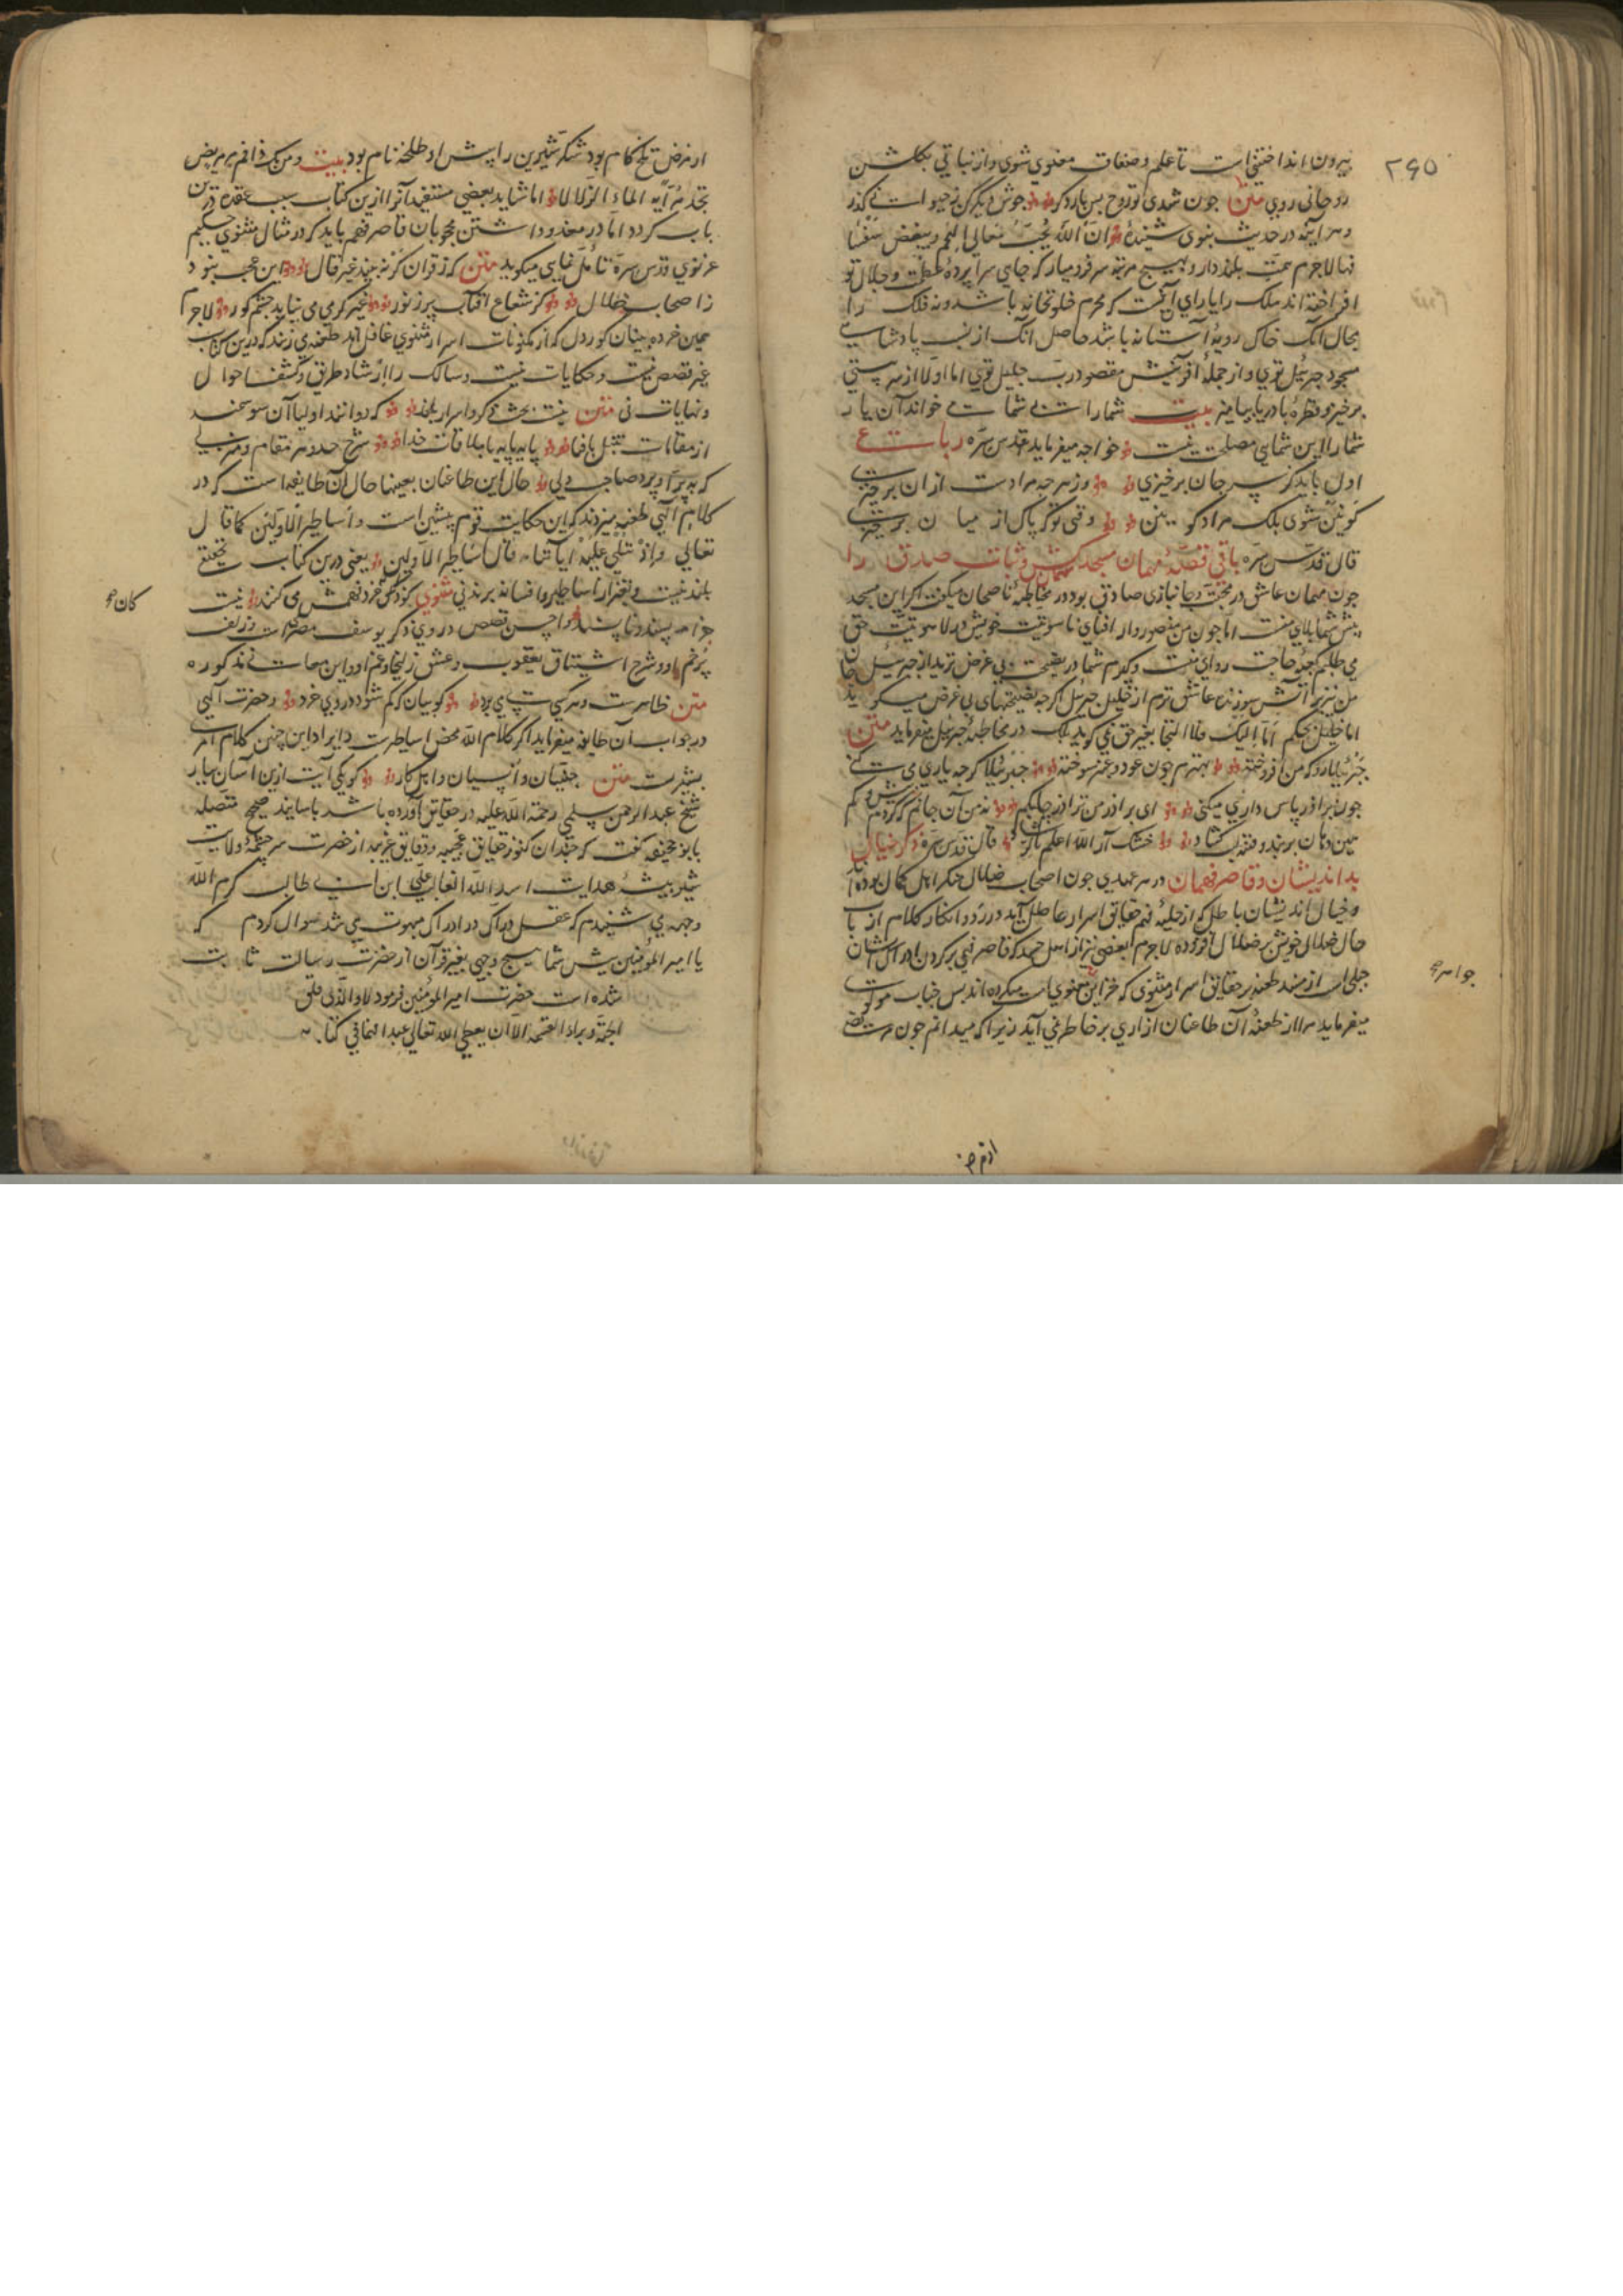 ۲۹۵
بیرون انداختنی است تا علم و صفات معنوی شوی و از نباتی بگلشن
روحانی روی متن جون شدی تو روح پس بار دکر جوش دیگر کن ز حیوانی کذر
و هر آینه در حدیث نبوی شنیدهٔ ان الله یحب معالی الهمم و یبغض سفسا
فها لاجرم همت بلند دار و بهیچ مرتبه سر فرود میار که جایی سراپردهٔ عظمت و جلال تو
افراخته اند ملک را یارای آن نیست که محرم خلوتخانه باشد و نه فلک را
مجال آنک خاک روبهٔ آستانه باشد حاصل آنک از نسب پادشاهی
مسجود جبرئیل توی و از جملهٔ آفرینش مقصود رب جلیل توی اما اولا از سر هستی
برخیز و قطره با دریا بیامیز بیت شما را بی شما می خواند آن یار
شما را این شمایی مصلحت نیست خواجه میفرماید قدس سره رباعی
اول باید کز سر جان برخیزی وز هر جه مرادت از ان برخیزی
کونین شوی بلک مراد کونین وقتی تو که پاک از میان برخیزی
قال قدس سره باقی قصهٔ مهمان مسجد مهمان کش و ثبات صدق او را
جون مهمان عاشق در محبت و جانبازی صادق بود در مخاطبهٔ ناصحان میگفت اکر این مسجد
پیش شما بلای منست اما جون من منصوروار افنای ناسوتیت خویش در لاهوتیت حق
می طلبم جه حاجت روای منست و کیرم شما در نصیحت بی غرض ترید از جبرئیل جان
من نیز بر آتش سوزنده عاشق ترم از خلیل جبرئیل اکر جه نصیحتهای بی غرض میگوید
اما خلیل بحکم اما الیک فلا التجا بغیر حق نمی کوید بلک در مخاطبهٔ جبرئیل میفرماید متن
جبرئیلا رو که من افروخته بهترم جون عود و عنبر سوخته جبرئیلا کرجه یاری می کنی
جون برادر پاس داری میکنی ای برادر من بر آذر جابکم نه من آن جانم که کردم بیش و کم
هین دهان بربند و فتنه لب کشاد خشک آر الله اعلم بالرشاد قال قدس سره ذکر خیال
بد اندیشان و قاصر فهمان در هر عهدی جون اصحاب ضلال منکر اهل کمال بوده اند
و خیال اندیشان باطل که از حلیهٔ فهم حقایق اسرار عاطل آید در رد و انکار کلام ارباب
حال ضلالی خویش بر ضلال افزوده لاجرم بعضی نیز از اهل حسد که قاصر فهمی بر کردن ادراک ایشان
جبلی است از حسد طعنه بر حقایق اسرار مثنوی که خزاین معنوی است میکرده اند پس جناب مولوی
میفرماید مرا از طعنهٔ آن طاعنان آزاری بر خاطر نمی آید زیرا که میدانم جون مرض
از مرض
از مرض تلخ کام بود شکر شیرین را پیش او طلخه نام بود بیت و من یک ذا فم مر مریض
یجد مرا به الماء الزلالا اما شاید بعضی مستفیدان را ازین کتاب سبب عقده درین
باب کردد اما در معذور داشتن محجوبان قاصر فهم باید که در مثال مثنوی حکیم
غزنوی قدس سره تامل نمایی میکوید متن که ز قرآن کر نبیند غیر قال این عجب نبود
ز اصحاب ضلال کز شعاع آفتاب پر ز نور غیر کرمی می نیابد جشم کور لاجرم
همین خرده بینان کور دل که از مکنونات اسرار مثنوی غافل اند طعنه می زنند که درین کتاب
غیر قصص نیست و حکایات نیست و سالک را ارشاد طریق و کشف احوال
و نهایات نی متن نیست بحث و ذکر و اسرار بلند که دوانند اولیا آن سو سمند
از مقامات تبتل تا فنا پایه پایه تا ملاقات خدا شرح حد و هر مقام و منزلی
که به پر زو بر پرد صاحب دلی حال این طاعنان بعینها حال آن طایفه است که در
کلام الهی طعنه میزدند که این حکایت قوم پیشین است و اساطیر الاولین کما قال
تعالی و اذ تتلی علیه آیاتنا قال اساطیر الاولین یعنی درین کتاب تحقیق
بلند نیست و بغیر از اساطیر و افسانهٔ نژند نی مثنوی کودکان خرد فهمش می کنند نیست
جز امر پسند و ناپسند و احسن قصص در وی ذکر یوسف مصر است و زلف
پر خم او و شرح اشتیاق یعقوب و عشق زلیخا و غم او و این معانی مذکوره
متن ظاهرست و هر کسی پی می برد کو بیان که کم شود در وی خرد و حضرت الهی
در جواب آن طایفه میفرماید اکر کلام الله محض اساطیرست و ایراد این چنین کلام امر
بشریست متن جنیان و انسیان و اهل کار کو یکی آیت ازین آسان بیار
شیخ عبد الرحمن سلمی رحمة الله علیه در حقایق آورده باشد باسانید صحیح متصله
بابو جحیفه کفت که جندان کنوز حقایق عجیبه و دقایق غریبه از حضرت سرجشمهٔ ولایت
شیر بیشهٔ هدایت اسد الله الغالب علی ابن ابی طالب کرم الله
وجهه می شنیدم که عقل دراک در ادراک مبهوت می شد سوال کردم که
یا امیر المؤمنین پیش شما هیچ وحیی بغیر قرآن از حضرت رسالت ثابت
شده است حضرت امیر المؤمنین فرمود لا و الذی فلق
الحبة و برأ النسمة الا ان یعطی الله تعالی عبدا فهما فی کتابه